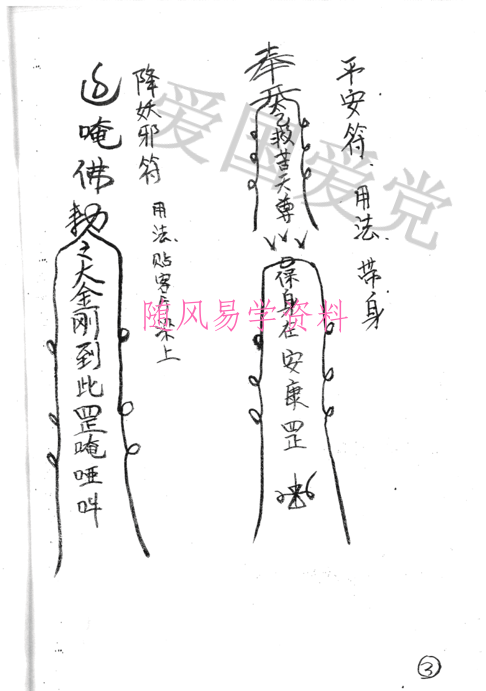 平安符 用法 带身
奉
救苦天尊
保身在安康罡
降妖邪符 用法 贴客厅梁上
唵佛勅
之大金刚到此罡唵哑吽
爱国爱党
随风易学资料
③